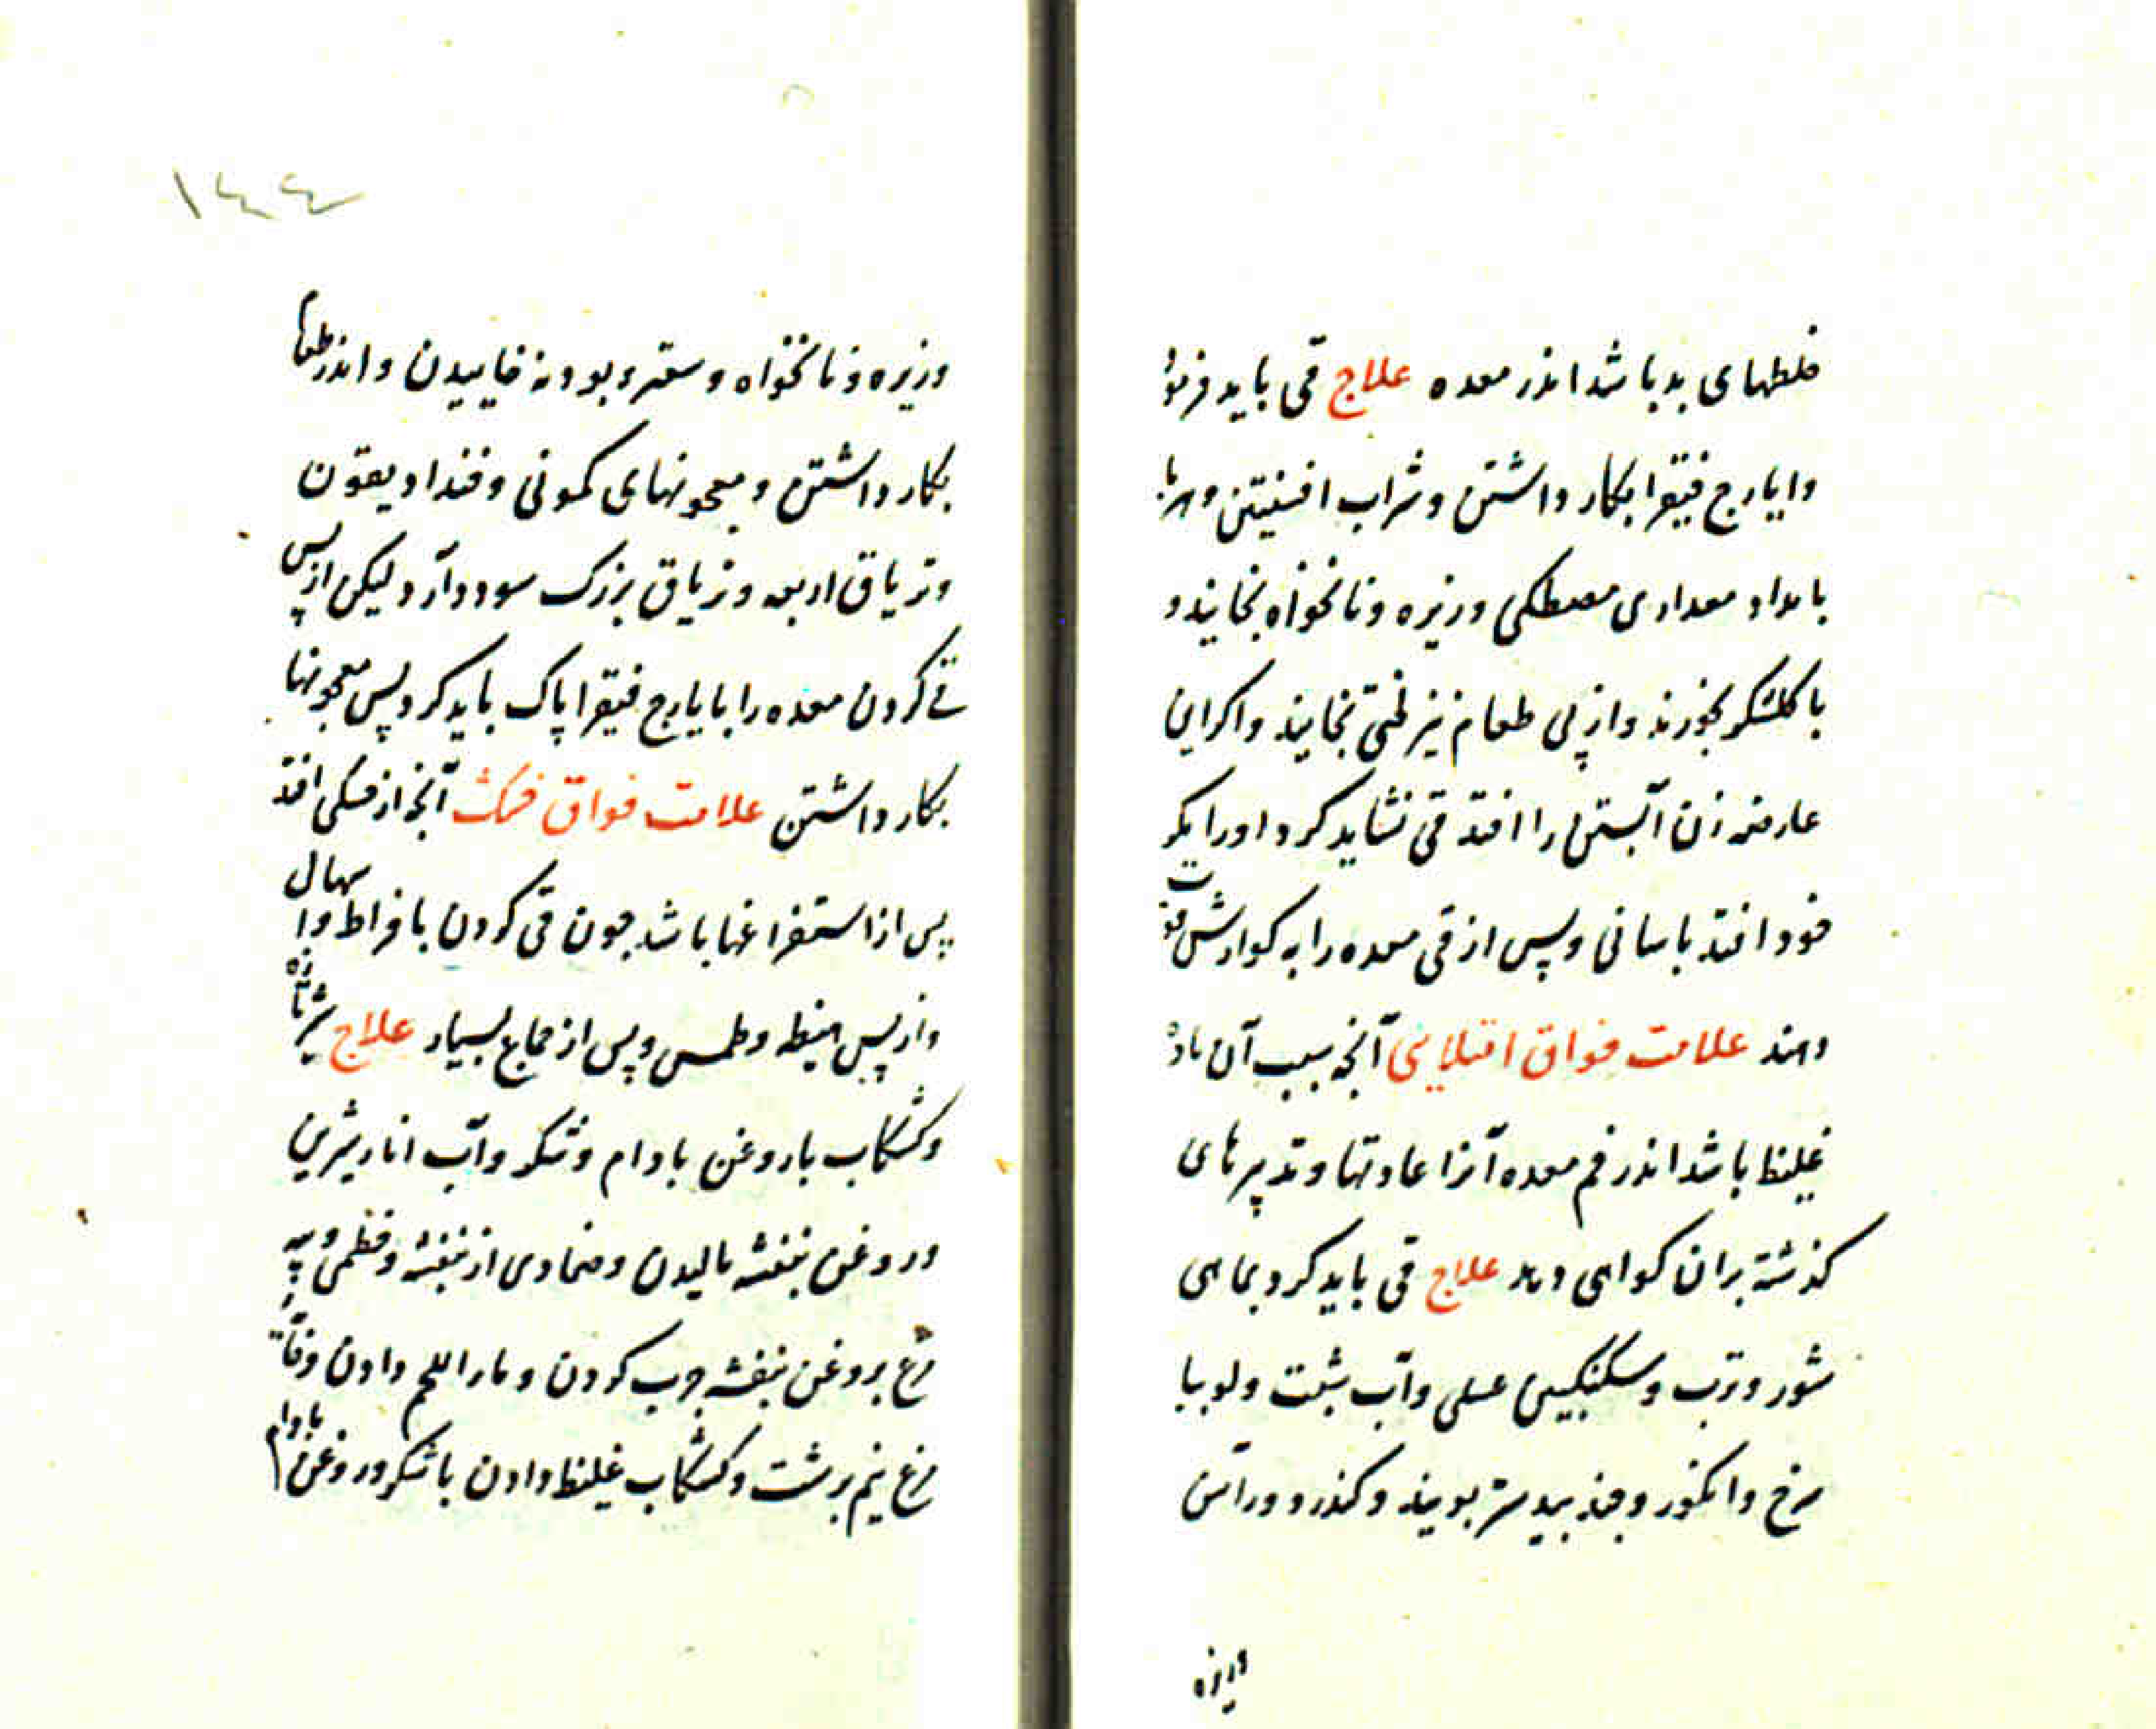 خلطهای بد باشد اندر معده علاج قی باید فرمود
وایارج فیقرا بکار داشتن و شراب افسنتین و هر با
بامداد مقداری مصطکی و زیره و نانخواه بخایند و
با گلشکر بخورند و از پی طعام نیز لختی بخایند واکر این
عارضه زن آبستن را افتد قی نشاید کرد اورا یکر
خود افتد باسانی و پس از قی معده را به کوارش قوت
دهند علامت فواق امتلایی آنچه سبب آن ماده
غلیظ باشد اندر فم معده آنرا عادتها و تدبیرهای
کذشته بران کواهی دهد علاج قی باید کرد بماهی
شور و ترب و سکنکبین عسلی و آب شبت و لوبیا
سرخ و انکور و جند بیدستر بویند و کندر و راسن
وزیره
١٤٤
وزیره و نانخواه و سعتر و بودنه خاییدن و اندر طعام
بکار داشتن و معجونهای کمونی و فنداد یقون
و تریاق اربعه و تریاق بزرک سود دارد لیکن از پس
قے کردن معده را بایارج فیقرا پاک باید کرد پس معجونها
بکار داشتن علامت فواق خشک آنچه از خشکی افتد
پس از استفراغها باشد جون قی کردن بافراط و اسهال
و از پس هیضه و طمس و پس از جماع بسیار علاج شیر تازه
و کشکاب باروغن بادام و شکر و آب انار شیرین
و روغن بنفشه مالیدن و ضمادی از بنفشه و خطمی و پیه
مرغ بروغن بنفشه جرب کردن و ماء اللحم دادن و خایه
مرغ نیم برشت و کشکاب غلیظ دادن با شکر و روغن بادام